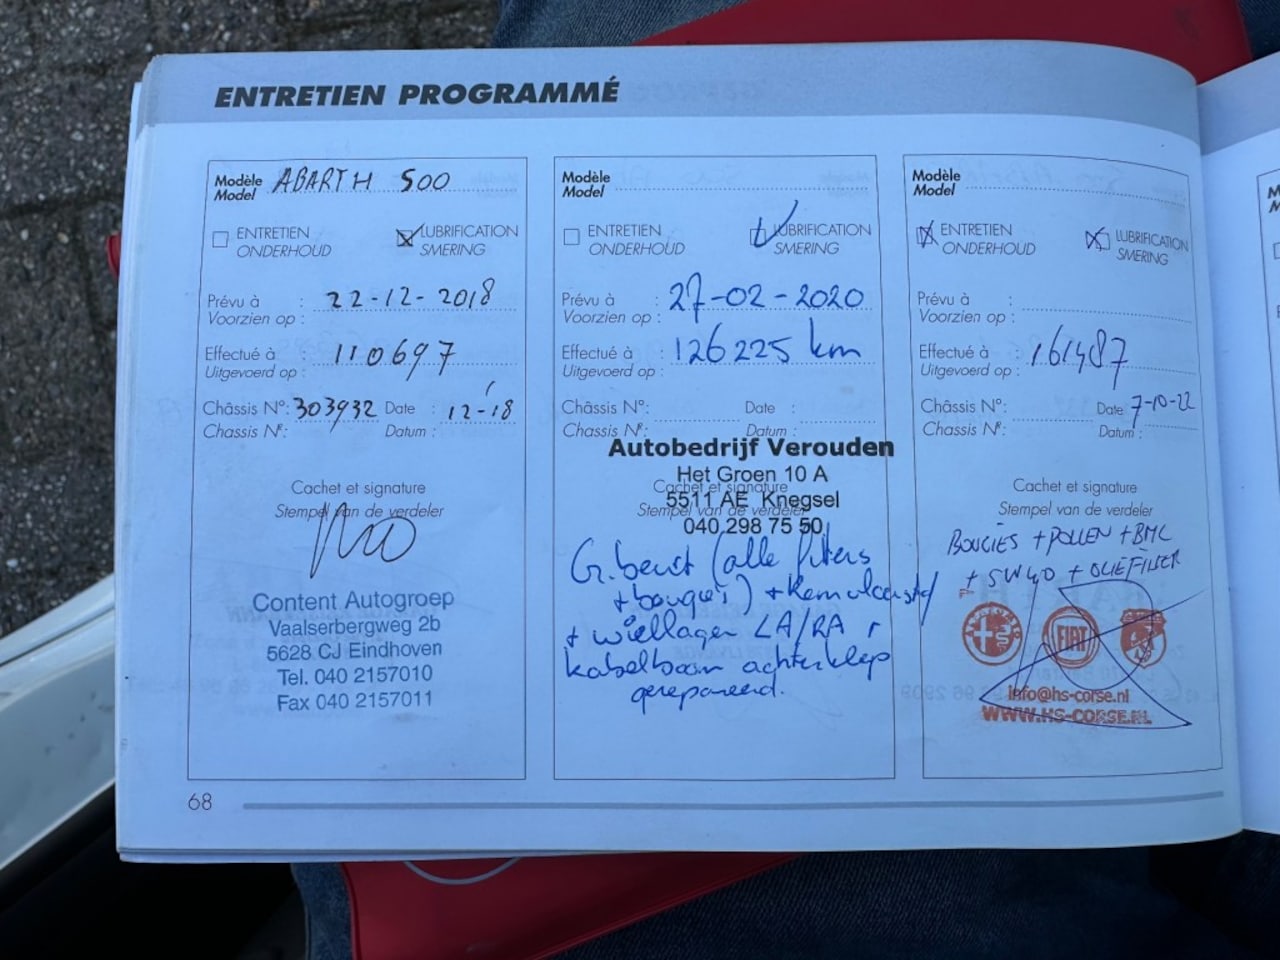 ENTRETIEN PROGRAMMÉ
Modèle ABARTH 500
Model
ENTRETIEN
ONDERHOUD
LUBRIFICATION
SMERING
Prévu à : 22-12-2018
Voorzien op :
Effectué à : 110697
Uitgevoerd op :
Châssis N°: 303932 Date : 12-18
Chassis Nr.: Datum :
Cachet et signature
Stempel van de verdeler
Content Autogroep
Vaalserbergweg 2b
5628 CJ Eindhoven
Tel. 040 2157010
Fax 040 2157011
Modèle
Model
ENTRETIEN
ONDERHOUD
LUBRIFICATION
SMERING
Prévu à : 27-02-2020
Voorzien op :
Effectué à : 126225 km
Uitgevoerd op :
Châssis N°: Date :
Chassis Nr.: Datum :
Autobedrijf Verouden
Het Groen 10 A
Cachet et signature
5511 AE Knegsel
Stempel van de verdeler
040 298 75 50
G. beurt (alle filters
+ bougei's) + Remvloeistof
+ wiellager LA/RA +
kabelboom achterklep
gerepareerd.
Modèle
Model
ENTRETIEN
ONDERHOUD
LUBRIFICATION
SMERING
Prévu à :
Voorzien op :
Effectué à : 161487
Uitgevoerd op :
Châssis N°: Date : 7-10-22
Chassis Nr.: Datum :
Cachet et signature
Stempel van de verdeler
BOUGIES + POLLEN + BMC
+ 5W40 + OLIEFILTER
FIAT
info@hs-corse.nl
WWW.HS-CORSE.NL
68